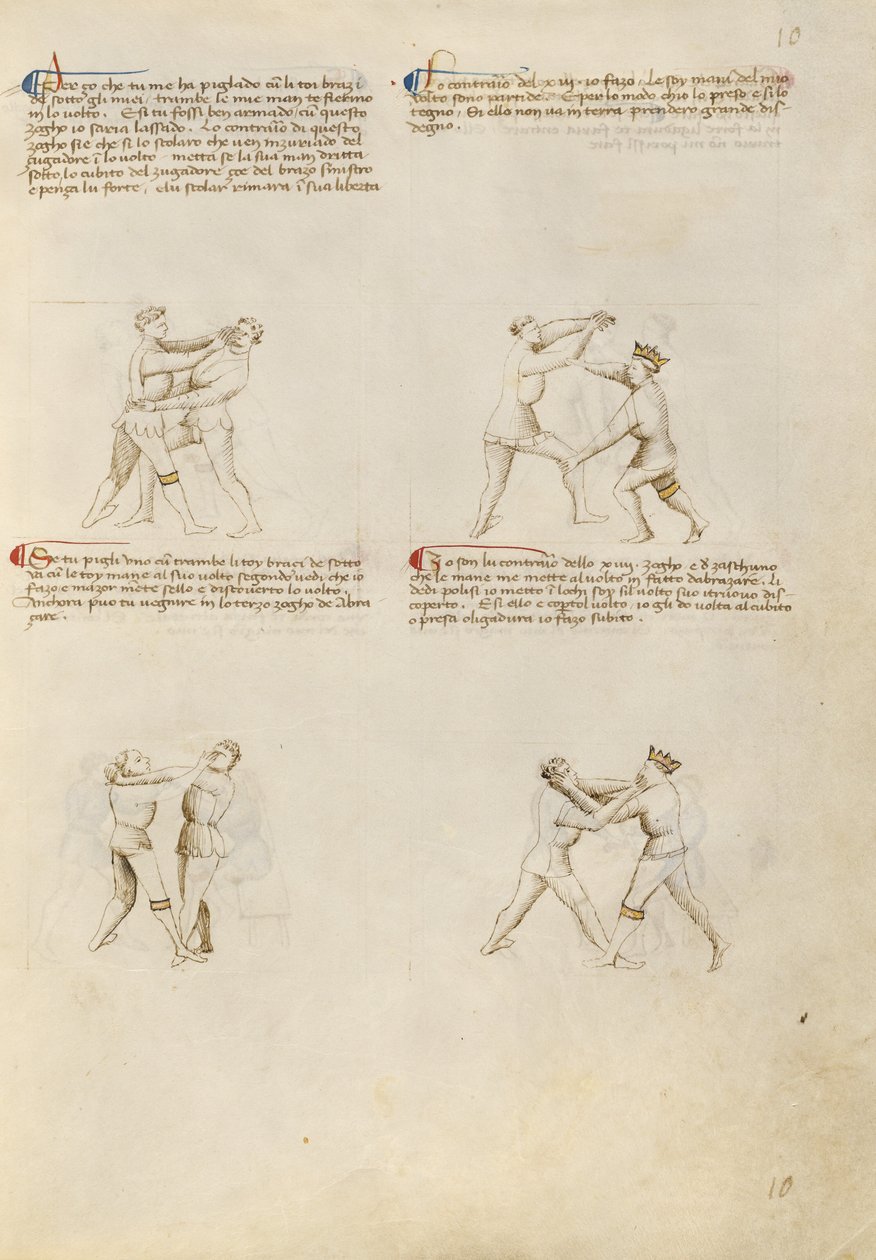 10
Per ço che tu me ha piglado cũ li toi brazi
de sotto gli miei, trambe le mie man te fierino
in lo volto. E si tu fossi ben armado, cũ questo
zogho io saria lassado. Lo contrario di questo
zogho sie che si lo scolaro che ven inzuriado del
zugadore ĩ lo volto metta se la sua man dritta
sotto, lo cubito del zugadore çoe del brazo sinistro
e penza lu forte, elu scolar rimara ĩ sua liberta
Lo contrario del xiiij. io fazo, Le soy mani del mio
volto sono partide. E per lo modo chio lo preso e si lo
tegno, Si ello non va in terra prendero grande dis-
degno.
Se tu pigli uno cũ trambe li toy braci de sotto
va cũ le toy mane al suo volto segondo vedi che io
fazo e mazormẽte sello e discoverto lo volto.
Anchora puo tu vegnire in lo terzo zogho de Abra
çare.
Io son lu contrario dello xiiij. zogho e d zaschuno
che le mane me mette al volto in fatto dabrazare. Li
dedi polisi io metto ĩ lochi soy sil volto suo itruovo dis-
coperto. E si ello e copertol volto, io gli do volta al cubito
o presa o ligadura io fazo subito.
10